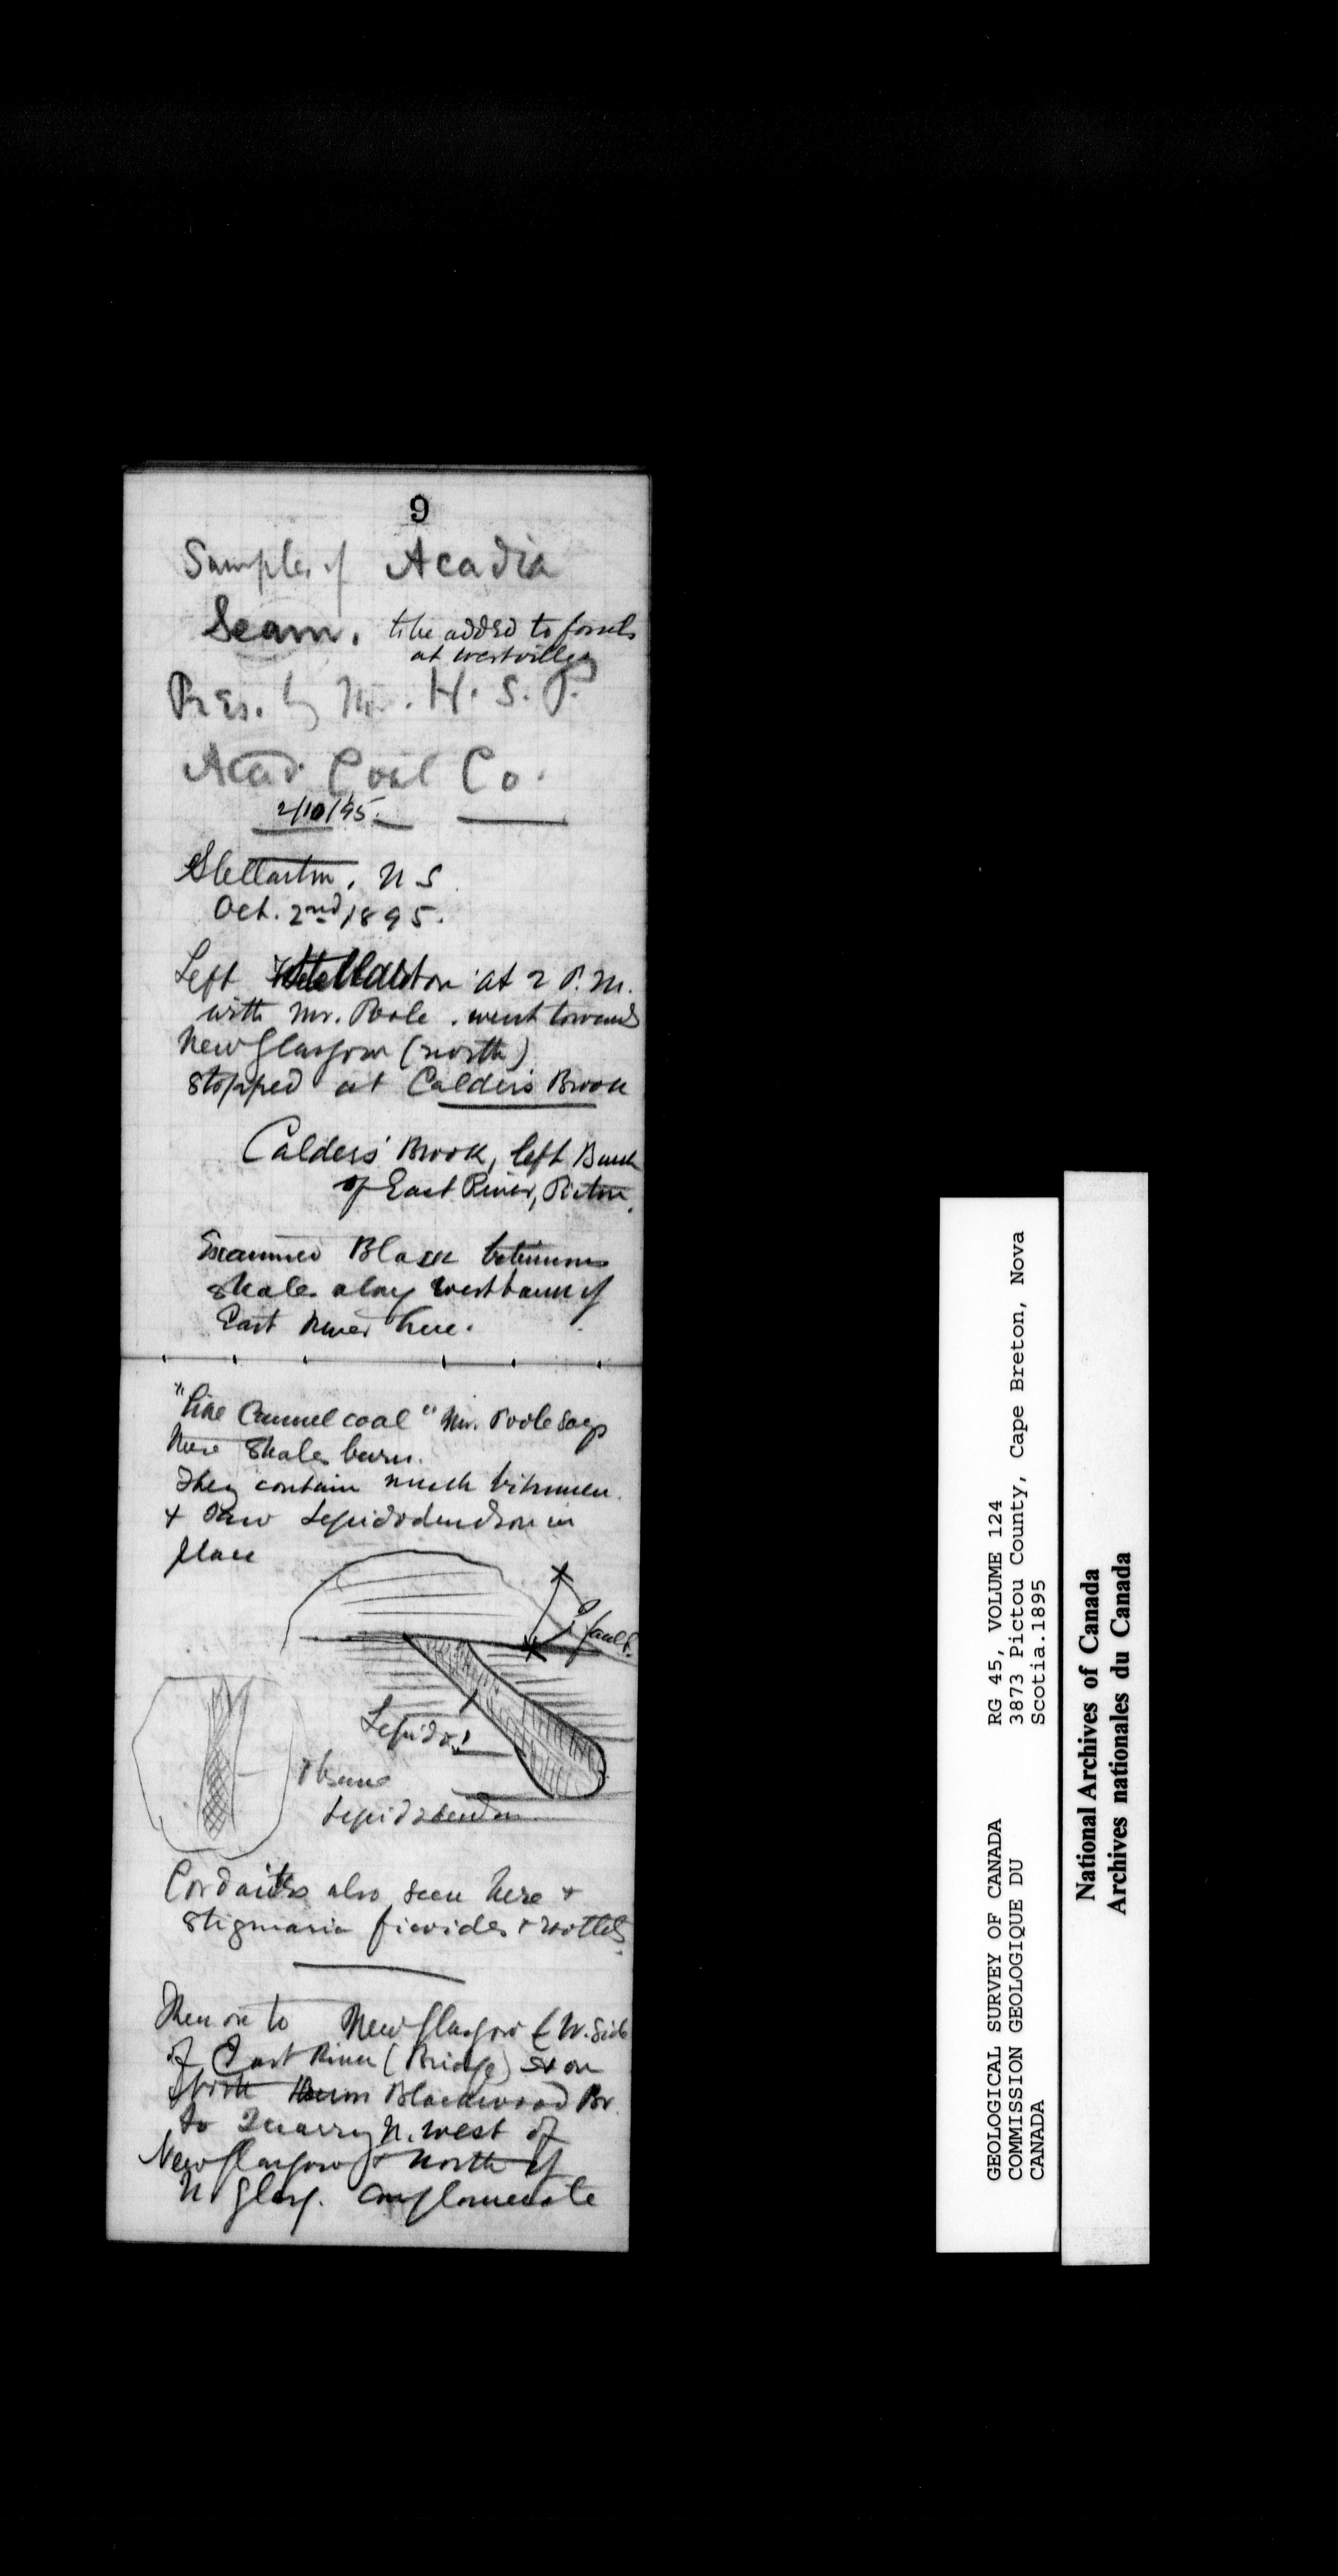 9
Samples of Acadia
Seam. to be added to fossils
at Westville
Pres. by Mr. H. S. P.
Acad. Coal Co.
2/10/95.
Stellarton, N S
Oct. 2nd 1895.
Left Stellarton at 2 P.M.
with Mr. Poole. went towards
New Glasgow (north)
stopped at Calder's Brook
Calders' Brook, left Bank
of East River, Pictou.
Examined Black bituminous
shales along west bank of
East River here.
"Like Cannel coal" Mr. Poole says
these shales burn.
They contain much bitumen.
+ saw Lepidodendron in
place
fault.
Lepido.!
Lepidodendron
Cordaites also seen here +
Stigmaria ficoides + rootlets
Then on to New Glasgow (W. side
of East River (Bridge) & on
Blackwood Br.
to Quarry N. west of
New Glasgow & north of
N. Glasg. Conglomerate
GEOLOGICAL SURVEY OF CANADA
COMMISSION GEOLOGIQUE DU
CANADA
RG 45, VOLUME 124
3873 Pictou County, Cape Breton, Nova
Scotia.1895
National Archives of Canada
Archives nationales du Canada